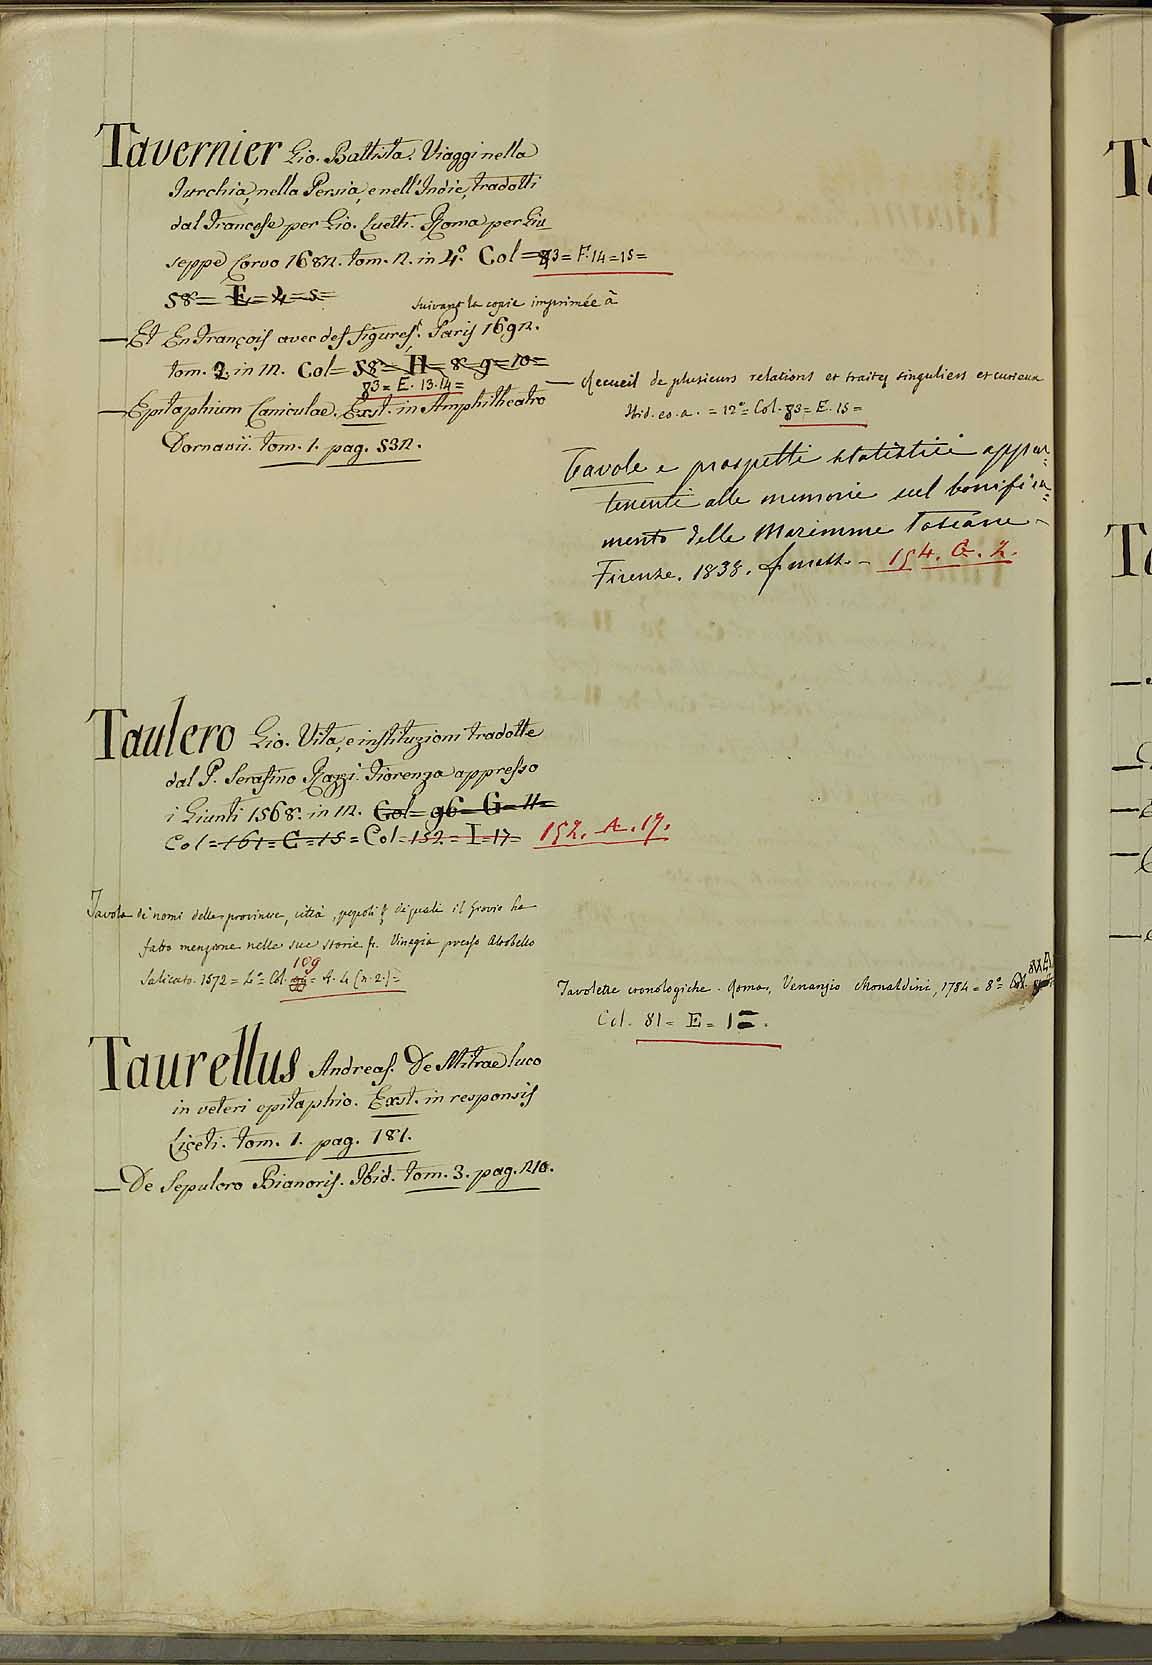 Tavernier Gio. Battista. Viaggi nella
Turchia, nella Persia, e nell'Indie, tradotti
dal Francese per Gio. Luetti. Roma per Giu
seppe Corvo 1682. tom. 2. in 4.º Col = 83 = F. 14 = 15 =
58 = E = 4 = 5 =
suivant la copie imprimée à
— Et En François avec des figures. Paris 1692.
tom. 2. in 12. Col = 58 = H = 8 = 9 = 10 =
83 = E. 13. 14 =
— Epitaphium Caniculae. Exst. in Amphitheatro
Dornavii. tom. 1. pag. 532.
— Recueil de plusieurs relations et traitez singuliers et curieux
Ibid. eo. a. = 12º = Col. 83 = E. 15 =
Tavole e prospetti statistici appar=
tenenti alle memorie sul bonifica=
mento delle Maremme Toscane
Firenze. 1838. 154. G. 2.
Taulero Gio. Vita, e instituzioni tradotte
dal P. Serafino Razzi. Fiorenza appresso
i Giunti 1568. in 12. Col = 96 = G = 11 =
Col = 161 = C = 15 = Col = 152 = I = 17 = 152. A. 17.
Tavola di nomi delle provincie, città, popoli & di quali il Giovio ha
fatto menzione nelle sue storie Vinegia presso Altobello
Salicato. 1572 = 4º = Col. 109 = A. 4 (n. 2.) =
Tavolette cronologiche. Roma, Venanzio Monaldini, 1784 = 8º = Col.
Col. 81 = E = 1 =.
Taurellus Andreas. De Mitrae luco
in veteri epitaphio. Exst. in responsis
Liceti. tom. 1. pag. 181.
— De Sepulcro Bianoris. Ibid. tom. 3. pag. 210.